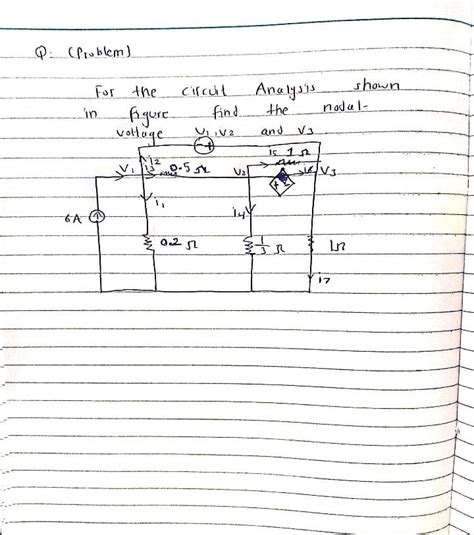 Q: (Problem)
For the circuit Analysis shown
in figure find the nodal-
voltage V1, V2 and V3.
i5 1 Ω
V1 i2 i3 0.5 Ω V2 V3
6A i1 i4
0.2 Ω 1/3 Ω 1Ω
i7